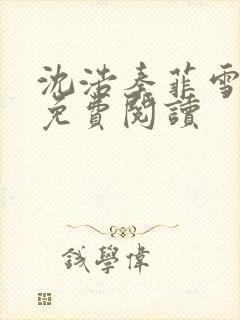 沈浩秦菲雪
免費閱讀
錢學偉